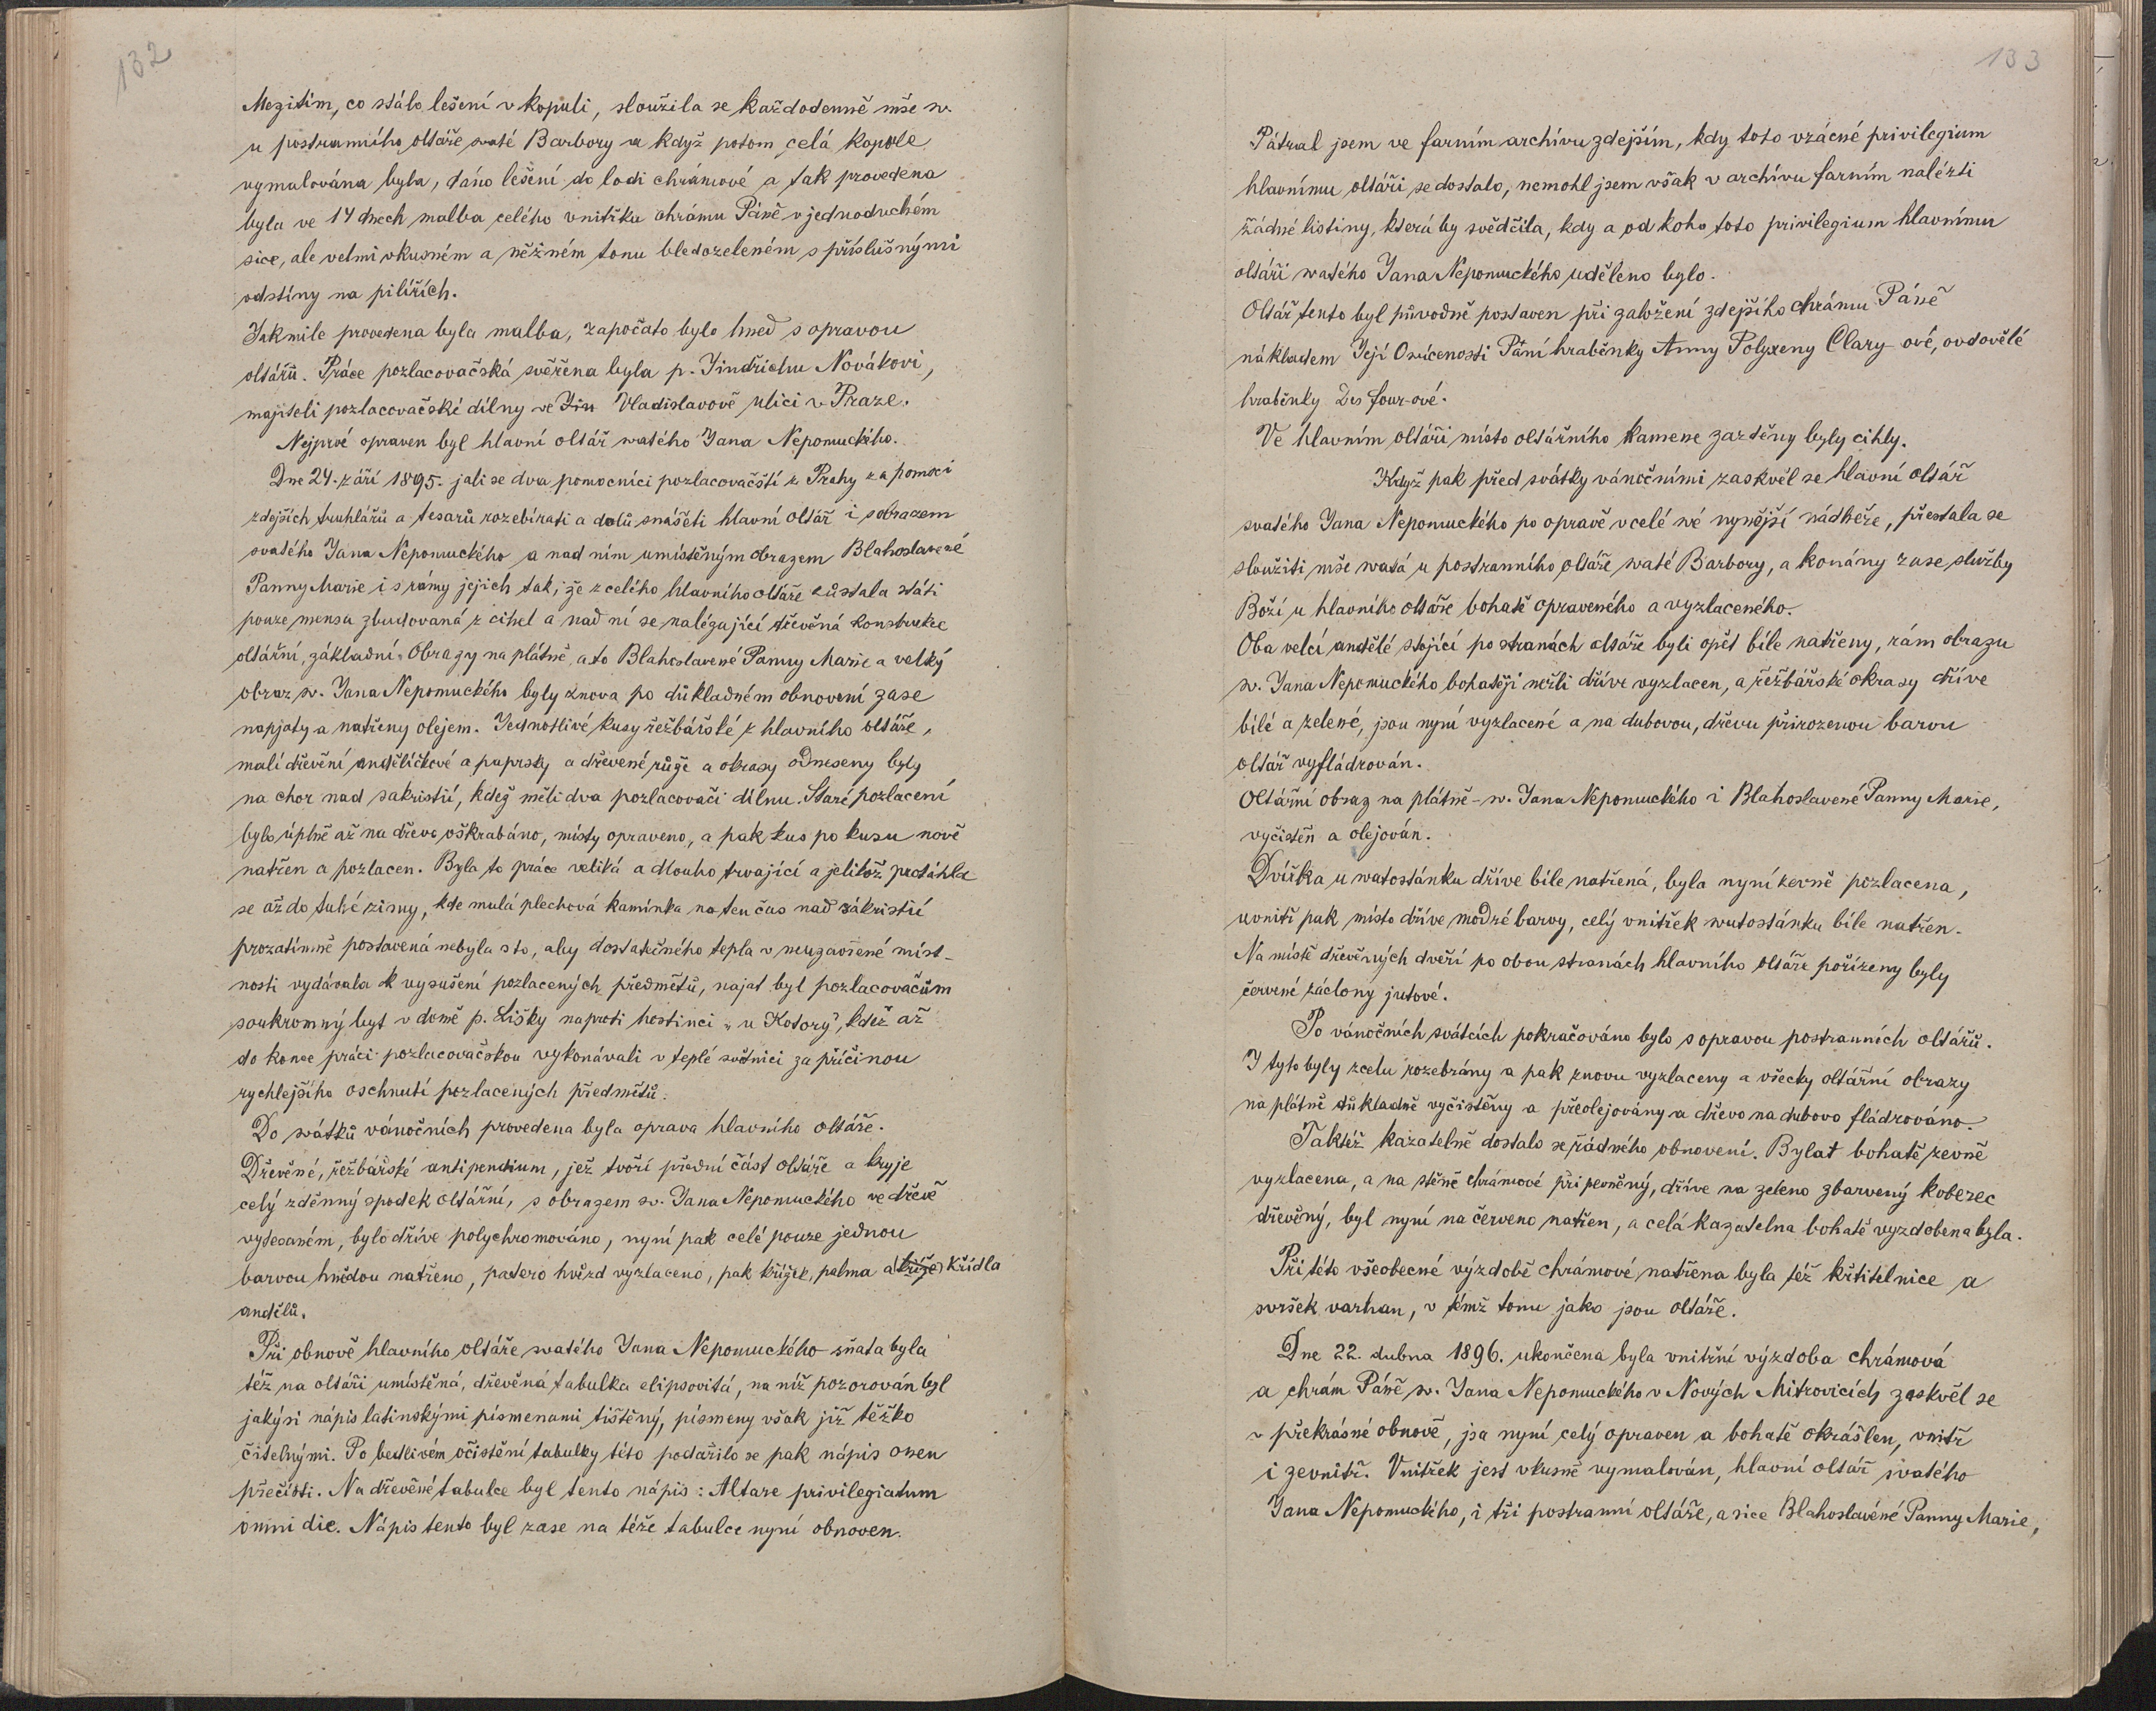 132
Mezitím, co stálo lešení v kopuli, sloužila se každodenně mše sv.
u postranního oltáře svaté Barbory a když potom celá kopule
vymalována byla, dáno lešení do lodi chrámové a tak provedena
byla ve 14 dnech malba celého vnitřku chrámu Páně v jednoduchém
sice, ale velmi vkusném a něžném tonu bledozeleném s příslušnými
odstíny na pilířích.
Jakmile provedena byla malba, započato bylo hned s opravou
oltářů. Práce pozlacovačská svěřena byla p. Jindřichu Novákovi,
majiteli pozlacovačské dílny ve Jin Vladislavově ulici v Praze.
Nejprvé opraven byl hlavní oltář svatého Jana Nepomuckého.
Dne 24. září 1895. jali se dva pomocníci pozlacovačští z Prahy za pomoci
zdejších truhlářů a tesařů rozebírati a dolů snášeti hlavní oltář i s obrazem
svatého Jana Nepomuckého a nad ním umístěným obrazem Blahoslavené
Panny Marie i s rámy jejich tak, že z celého hlavního oltáře zůstala státi
pouze mensa zbudovaná z cihel a nad ní se nalézající dřevěná konstrukce
oltářní, základní. Obrazy na plátně, a to Blahoslavené Panny Marie a velký
obraz sv. Jana Nepomuckého byly znova po důkladném obnovení zase
napjaty a natřeny olejem. Jednotlivé kusy řežbářské z hlavního oltáře,
malí dřevění andělíčkové a paprsky a dřevené růže a okrasy odneseny byly
na chor nad sakristií, kdež měli dva pozlacovači dílnu. Staré pozlacení
bylo úplně až na dřevo oškrabáno, místy opraveno, a pak kus po kusu nově
natřen a pozlacen. Byla to práce veliká a dlouho trvající a jelikož protáhla
se až do tuhé zimy, kde malá plechová kamínka na ten čas nad sakristií
prozatímně postavená nebyla s to, aby dostatečného tepla v neuzavřené míst-
nosti vydávala k vysušení pozlacených předmětů, najat byl pozlacovačům
soukromný byt v domě p. Lišky naproti hostinci „u Kotory", kdež až
do konce práci pozlacovačskou vykonávali v teplé světnici za příčinou
rychlejšího oschnutí pozlacených předmětů.
Do svátků vánočních provedena byla oprava hlavního oltáře.
Dřevěné, řežbářské antipendium, jež tvoří přední část oltáře a kryje
celý zděnný spodek oltářní, s obrazem sv. Jana Nepomuckého ve dřevě
vytesaném, bylo dříve polychromováno, nyní pak celé pouze jednou
barvou hnědou natřeno, patero hvězd vyzlaceno, pak křížek, palma a (kříže) křídla
andělů.
Při obnově hlavního oltáře svatého Jana Nepomuckého sňata byla
též na oltáři umístěná, dřevěná tabulka elipsovitá, na níž pozorován byl
jakýsi nápis latinskými písmenami tištěný, písmeny však již těžko
čitelnými. Po bedlivém očistění tabulky této podařilo se pak nápis onen
přečísti. Na dřevěné tabulce byl tento nápis: Altare privilegiatum
omni die. Nápis tento byl zase na téže tabulce nyní obnoven.
133
Pátral jsem ve farním archívu zdejším, kdy toto vzácné privilegium
hlavnímu oltáři se dostalo, nemohl jsem však v archívu farním nalézti
žádné listiny, která by svědčila, kdy a od koho toto privilegium hlavnímu
oltáři svatého Jana Nepomuckého uděleno bylo.
Oltář tento byl původně postaven při založení zdejšího chrámu Páně
nákladem Její Osvícenosti Paní hraběnky Anny Polyxeny Clary-ové, ovdovělé
hraběnky Des four-ové.
Ve hlavním oltáři místo oltářního kamene zazděny byly cihly.
Když pak před svátky vánočními zaskvěl se hlavní oltář
svatého Jana Nepomuckého po opravě v celé své nynější nádheře, přestala se
sloužiti mše svatá u postranního oltáře svaté Barbory, a konány zase služby
Boží u hlavního oltáře bohatě opraveného a vyzlaceného.
Oba velcí andělé stojící po stranách oltáře byli opět bíle natřeny, rám obrazu
sv. Jana Nepomuckého bohatěji nežli dříve vyzlacen, a řežbářské okrasy dříve
bílé a zelené, jsou nyní vyzlacené a na dubovou, dřevu přirozenou barvu
oltář vyfládrován.
Oltářní obraz na plátně - sv. Jana Nepomuckého i Blahoslavené Panny Marie,
vyčistěn a olejován.
Dvířka u svatostánku dříve bíle natřená, byla nyní zevně pozlacena,
uvnitř pak místo dříve modré barvy, celý vnitřek svatostánku bíle natřen.
Na místě dřevěných dveří po obou stranách hlavního oltáře pořízeny byly
červené záclony jutové.
Po vánočních svátcích pokračováno bylo s opravou postranních oltářů.
I tyto byly zcela rozebrány a pak znovu vyzlaceny a všecky oltářní obrazy
na plátně důkladně vyčistěny a přeolejovány a dřevo na dubovo fládrováno.
Taktéž kazatelně dostalo se řádného obnovení. Bylať bohatě zevně
vyzlacena, a na stěně chrámové připevněný, dříve na zeleno zbarvený koberec
dřevěný, byl nyní na červeno natřen, a celá kazatelna bohatě vyzdobena byla.
Při této všeobecné výzdobě chrámové natřena byla též křtitelnice a
svršek varhan, v témž tonu jako jsou oltáře.
Dne 22. dubna 1896. ukončena byla vnitřní výzdoba chrámová
a chrám Páně sv. Jana Nepomuckého v Nových Mitrovicích zaskvěl se
v překrásné obnově, jsa nyní celý opraven a bohatě okrášlen, vnitř
i zevnitř. Vnitřek jest vkusně vymalován, hlavní oltář svatého
Jana Nepomuckého, i tři postranní oltáře, a sice Blahoslavéné Panny Marie,